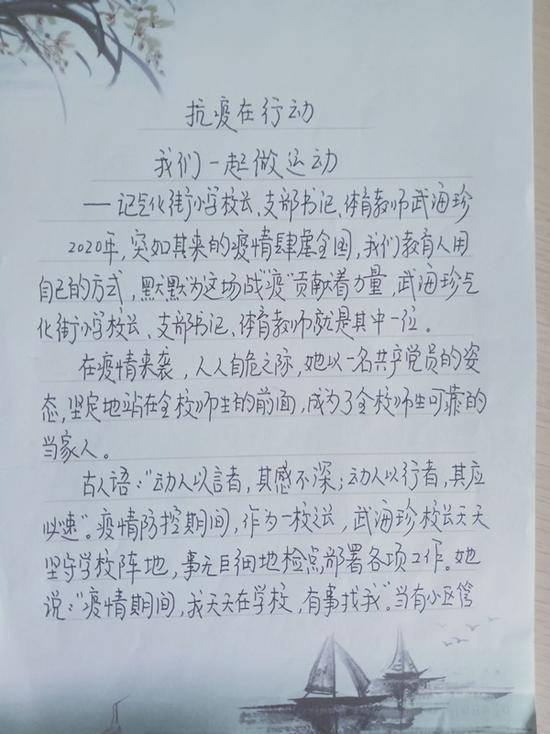 抗疫在行动
我们一起做运动
——记气化街小学校长、支部书记、体育教师武海珍
2020年,突如其来的疫情肆虐全国,我们教育人用
自己的方式,默默为这场战“疫”贡献着力量,武海珍气
化街小学校长、支部书记、体育教师就是其中一位。
在疫情来袭,人人自危之际,她以一名共产党员的姿
态,坚定地站在全校师生的前面,成为了全校师生可靠的
当家人。
古人语:“动人以言者,其感不深;动人以行者,其应
必速”。疫情防控期间,作为一校之长,武海珍校长天天
坚守学校阵地,事无巨细地检点,部署各项工作。她
说:“疫情期间,我天天在学校,有事找我”。当有小区管